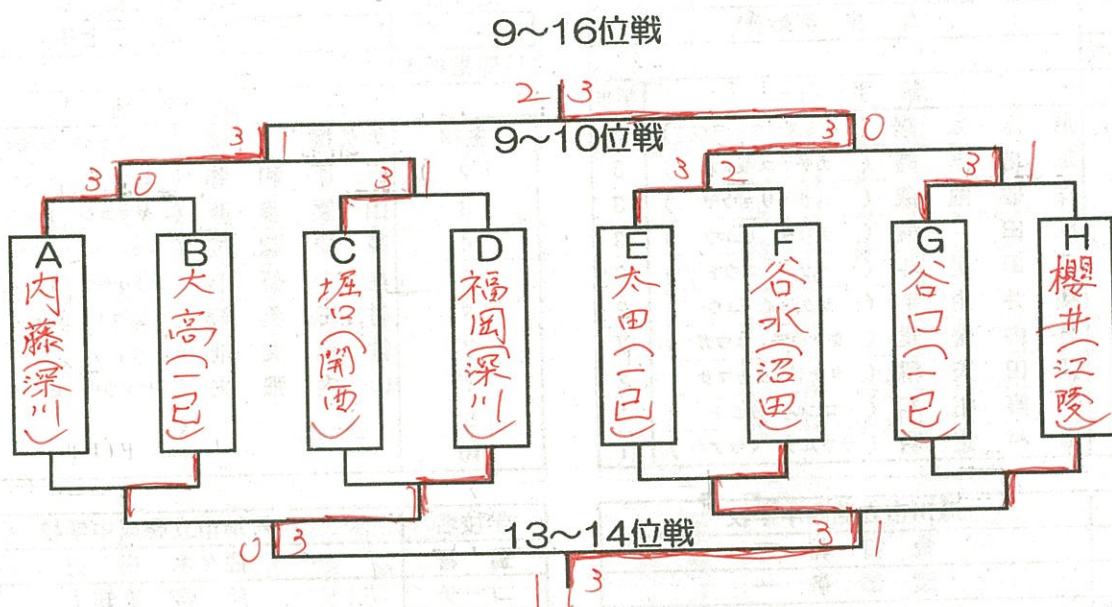 9～16位戦
2 3
9～10位戦
3 1
3 0
3 0
3 1
3 2
3 1
A
内藤(深川)
B
大高(一已)
C
堀口(開西)
D
福岡(深川)
E
太田(一已)
F
谷水(沼田)
G
谷口(一已)
H
櫻井(江陵)
13～14位戦
0 3
3 1
1 3